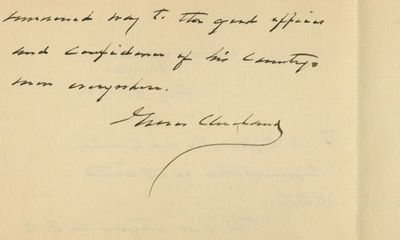 way to the good offices
and confidence of his country-
men everywhere.
Grover Cleveland